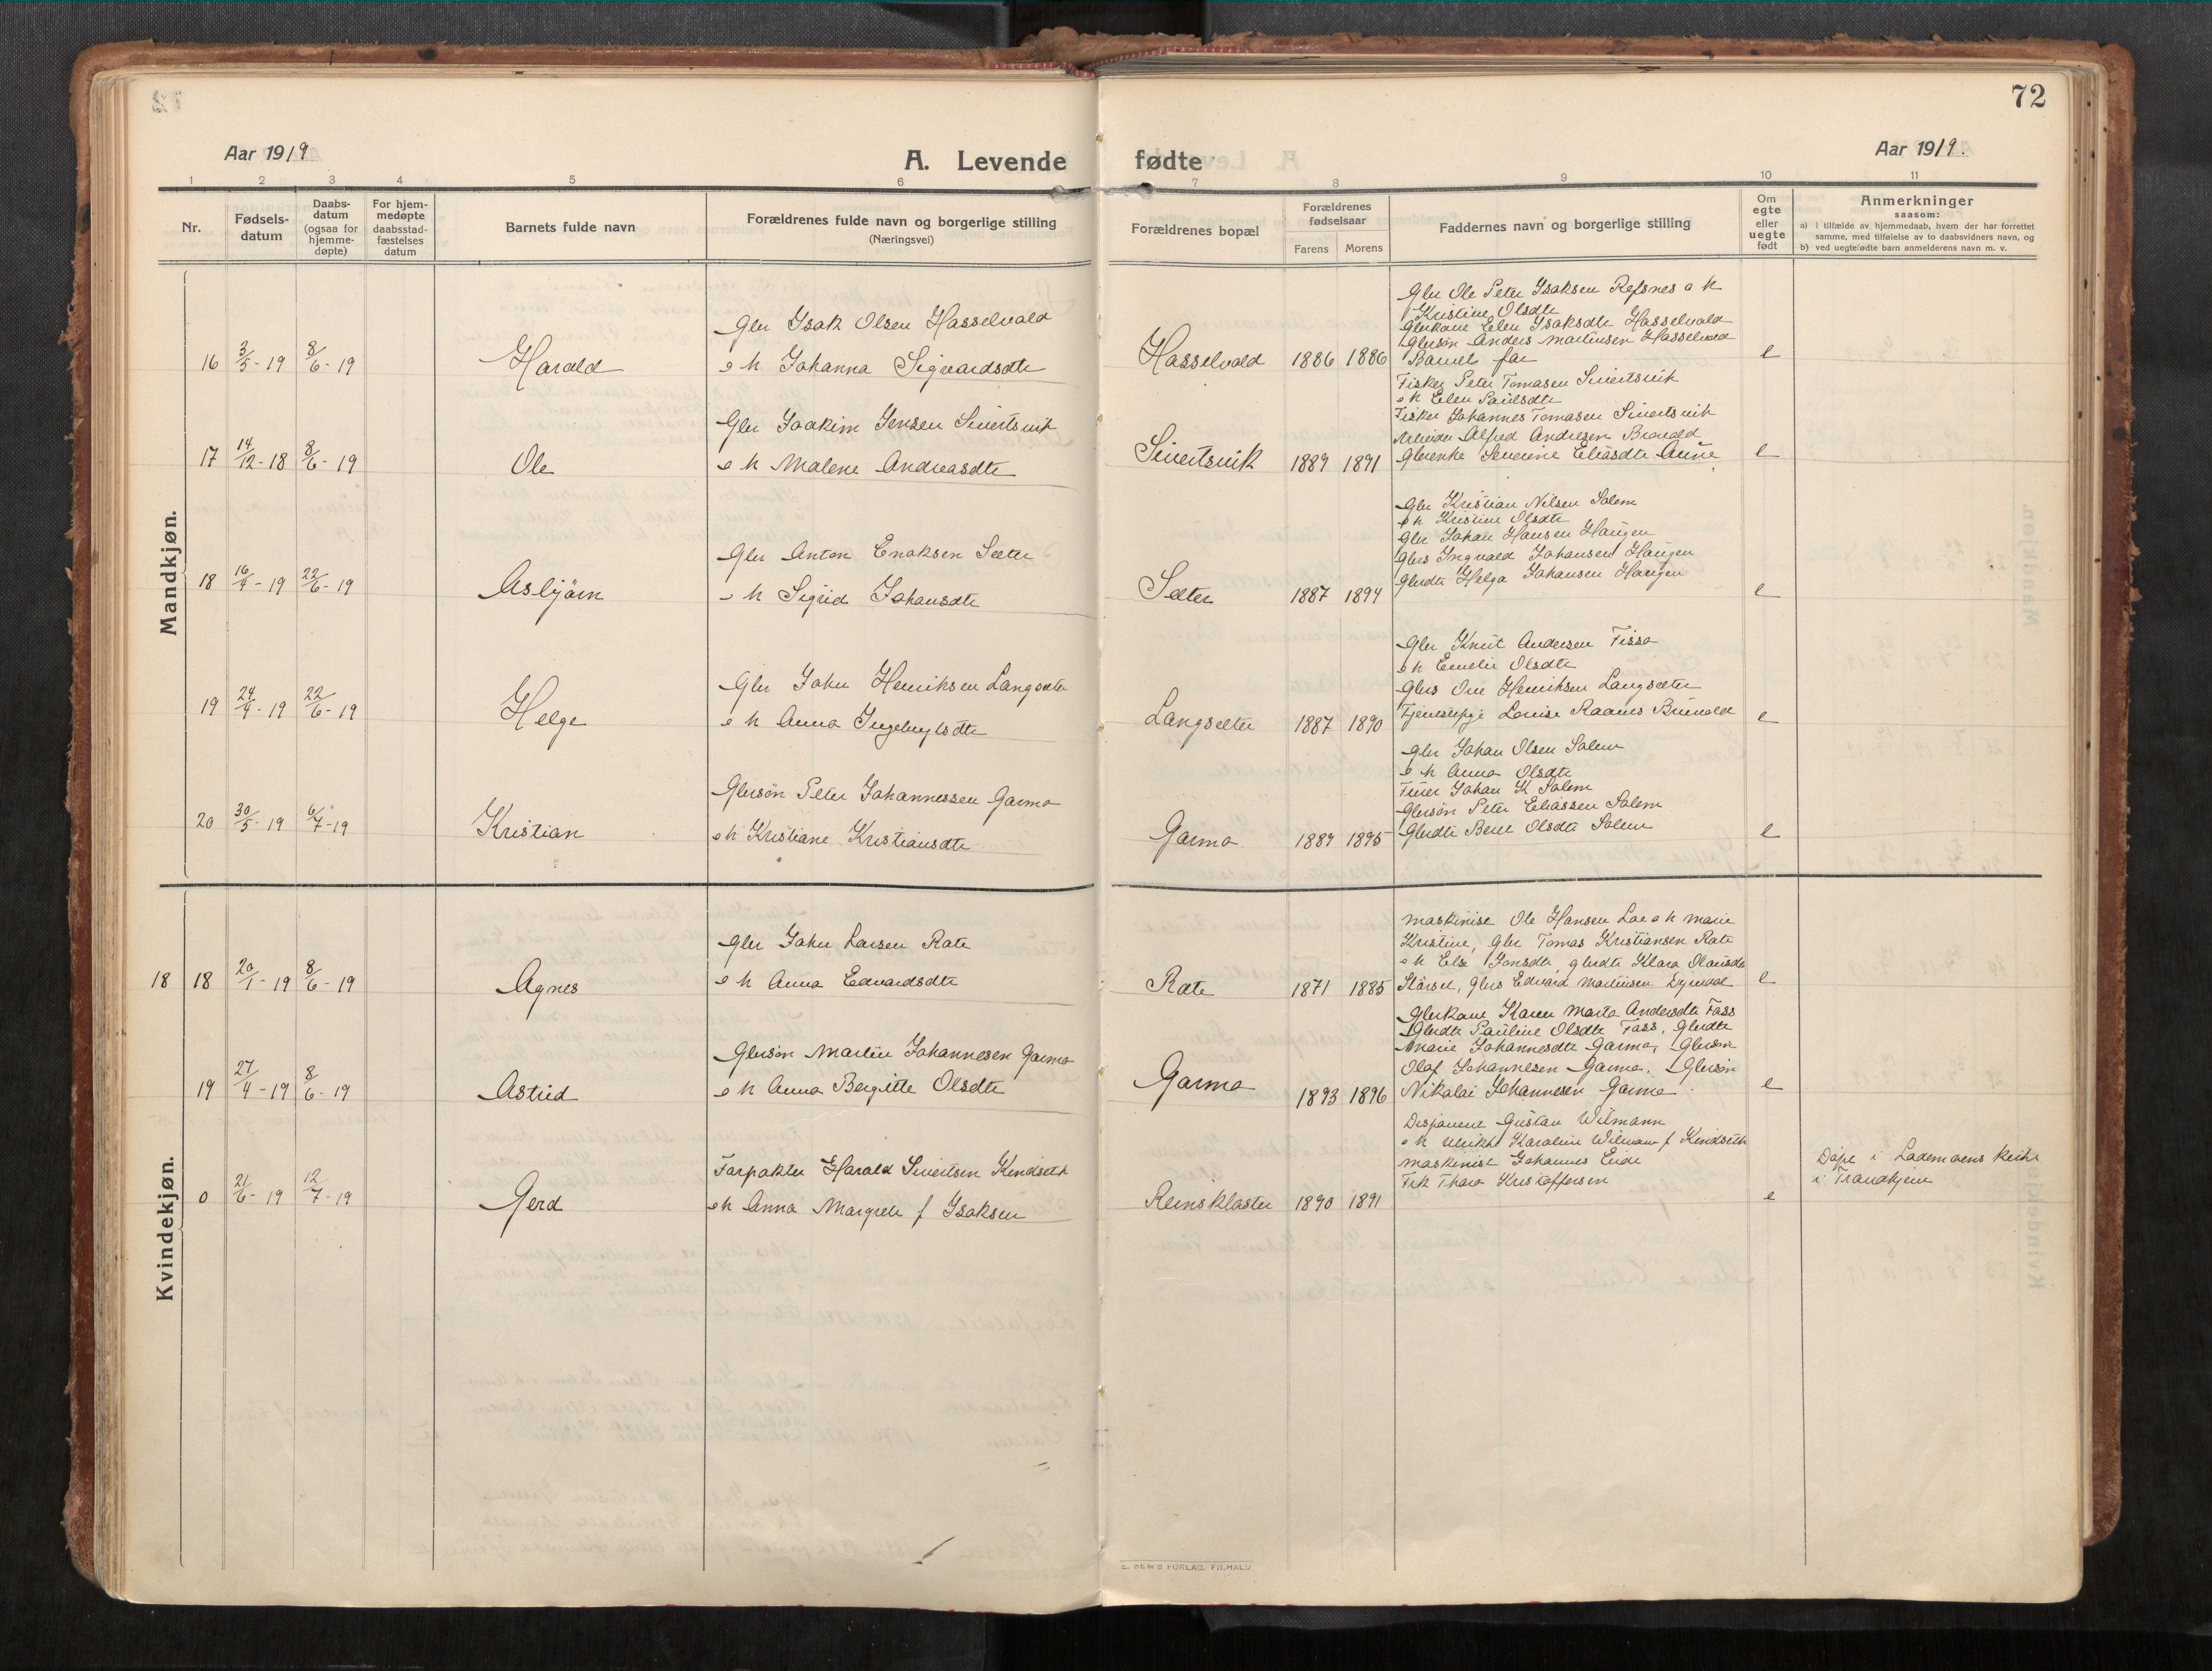 72
Aar 1919
A. Levende fødte
Aar 1919.
1 2 3 4 5 6 7 8 9 10 11
Nr.
Fødsels-
datum
Daabs-
datum
(ogsaa for
hjemme-
døpte)
For hjem-
medøpte
daabsstad-
fæstelses
datum
Barnets fulde navn
Forældrenes fulde navn og borgerlige stilling
(Næringsvei)
Forældrenes bopæl
Forældrenes
fødselsaar
Farens Morens
Faddernes navn og borgerlige stilling
Om
egte
eller
uegte
født
Anmerkninger
saasom:
a) i tilfælde av hjemmedaab, hvem der har forrettet
samme, med tilføielse av to daabsvidners navn, og
b) ved uegtefødte barn anmelderens navn m. v.
Mandkjøn.
16 3/5-19 8/6-19 Harald
Gbr Isak Olsen Hasselvold
o h Johanna Sigvardsdtr
Hasselvold 1886 1886
Gbr Ole Peter Isaksen Refsnes o h
Kristine Olsdtr
Gbrkone Elen Isaksdtr Hasselvold
Gbrsøn Anders Martinsen Hasselvold
Barnets far
e
17 14/12-18 8/6-19 Ole
Gbr Joakim Jensen Sivertsvik
o h Malene Andreasdtr
Sivertsvik 1889 1891
Fisker Peter Tomasen Sivertsvik
o h Elen Paulsdtr
Fisker Johannes Tomasen Sivertsvik
Arbeider Alfred Andresen
Gbrenke Severine Eliasdtr
e
18 16/4-19 22/6-19 Asbjørn
Gbr Anton Enoksen Sæter
o h Sigrid Johansdtr
Sæter 1887 1894
Gbr Kristian Nilsen Solem
o h Kristine Olsdtr
Gbr Johan Hansen Haugen
Gbrs Ingvald Johansen Haugen
Gbrdtr Helga Johansen Haugen
e
19 24/4-19 22/6-19 Helge
Gbr John Henriksen Langsæter
o h Anna Ingebrigtsdtr
Langsæter 1887 1890
Gbr Knut Andersen Fissa
o h Emelie Olsdtr
Gbrs Ove Henriksen Langsæter
Tjenestepige Louise Raanes
e
20 30/5-19 6/7-19 Kristian
Gbrsøn Peter Johannessen Garmo
o h Kristiane Kristiansdtr
Garmo 1889 1895
Gbr Johan Olsen Solem
o h Anna Olsdtr
Johan K Solem
Gbrsøn Peter Eliassen Solem
Gbrdtr Berit Olsdtr Solem
e
Kvindekjøn.
18 18 20/1-19 8/6-19 Agnes
Gbr John Larsen Rate
o h Anna Edvardsdtr
Rate 1871 1885
Maskinist Ole Hansen Loe o h Marie
Kristine, Gbr Tomas Kristiansen Rate
o h Else Jonsdtr, gbrdtr Klara Olausdtr
Størset, Gbrs Edvard Martinsen
e
19 27/4-19 8/6-19 Astrid
Gbrsøn Martin Johannesen Garmo
o h Anna Bergitte Olsdtr
Garmo 1893 1896
Gbrkone Karen Marta Andersdtr Fass
Gbrdtr Pauline Olsdtr Fass, Gbrdtr
Marie Johannesdtr Garmo, Gbrsøn
Olaf Johannesen Garmo, Gbrsøn
Nikolai Johannesen Garmo
e
0 21/6-19 12/7-19 Gerd
Forpakter Harald Sivertsen Kindseth
o h Anna Margrete f Isaksen
Reinskloster 1890 1891
Disponent Gustav Wilmann
o h Ulrikke Karoline Wilmann f Kindseth
Maskinist Johannes Eide
Frk Thora Kristoffersen
e
Døpt i Lademoens kirke
i Trondhjem
E. SEM'S FORLAG, FR.HALD